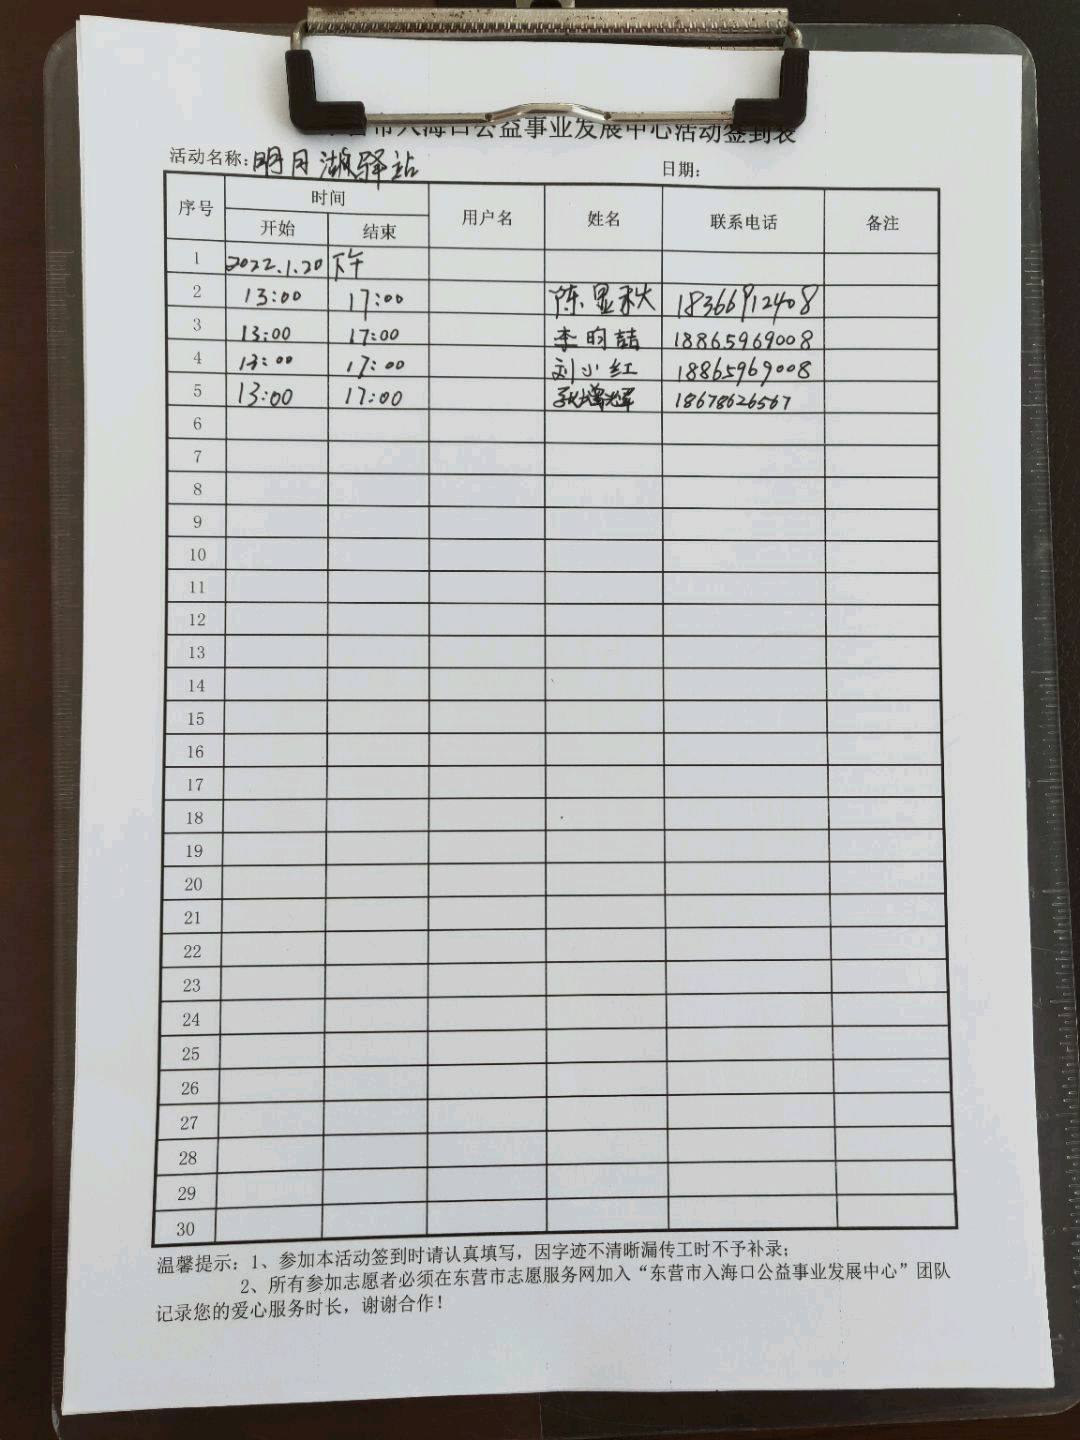 市入海口公益事业发展中心活动签到表
活动名称：明月湖驿站 日期：
序号 时间 用户名 姓名 联系电话 备注
开始 结束
1 2022.1.20 下午
2 13:00 17:00 陈显秋 18366912408
3 13:00 17:00 李昀喆 18865969008
4 13:00 17:00 刘小红 18865969008
5 13:00 17:00 增辉 18678626567
6
7
8
9
10
11
12
13
14
15
16
17
18
19
20
21
22
23
24
25
26
27
28
29
30
温馨提示：1、参加本活动签到时请认真填写，因字迹不清晰漏传工时不予补录；
2、所有参加志愿者必须在东营市志愿服务网加入“东营市入海口公益事业发展中心”团队
记录您的爱心服务时长，谢谢合作！